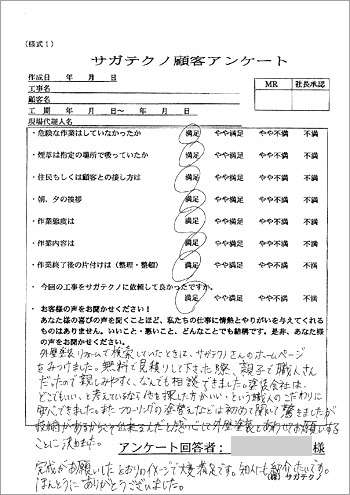 (様式1)
サガテクノ顧客アンケート
作成日 年 月 日
工事名
顧客名
工期 年 月 日～ 年 月 日
現場代理人名
MR 社長承認
・危険な作業はしていなかったか 満足 やや満足 やや不満 不満
・煙草は指定の場所で吸っていたか 満足 やや満足 やや不満 不満
・住民もしくは顧客との接し方は 満足 やや満足 やや不満 不満
・朝、夕の挨拶 満足 やや満足 やや不満 不満
・作業態度は 満足 やや満足 やや不満 不満
・作業内容は 満足 やや満足 やや不満 不満
・作業終了後の片付けは(整理・整頓) 満足 やや満足 やや不満 不満
・今回の工事をサガテクノに依頼して良かったですか。 満足 やや満足 やや不満 不満
・お客様の声をお聞かせください!
あなた様の喜びの声を聞くことほど、私たちの仕事に情熱とやりがいを与えてくれる
ものはありません。いいこと・悪いこと、どんなことでも結構です。是非、あなた様
の声をお聞かせください。
外壁塗装リフォームで検索していたときに、サガテクノさんのホームページ
をみつけました。無料で見積りして下さった際、親子で職人さん
だったので親しみやすく、なんでも相談できました。塗装会社は、
どこでもいい、と考えているなら他を探した方がいい、という職人のこだわりに
安心できました。またフローリングの塗替えなどは初めて聞いて驚きましたが
外壁塗装とあわせてお願いする
ことに決めました。
アンケート回答者: 様
完成がお願いしたとおりのイメージで大変満足です。知人にも紹介したいです。
ほんとうにありがとうございました。
(株)サガテクノ